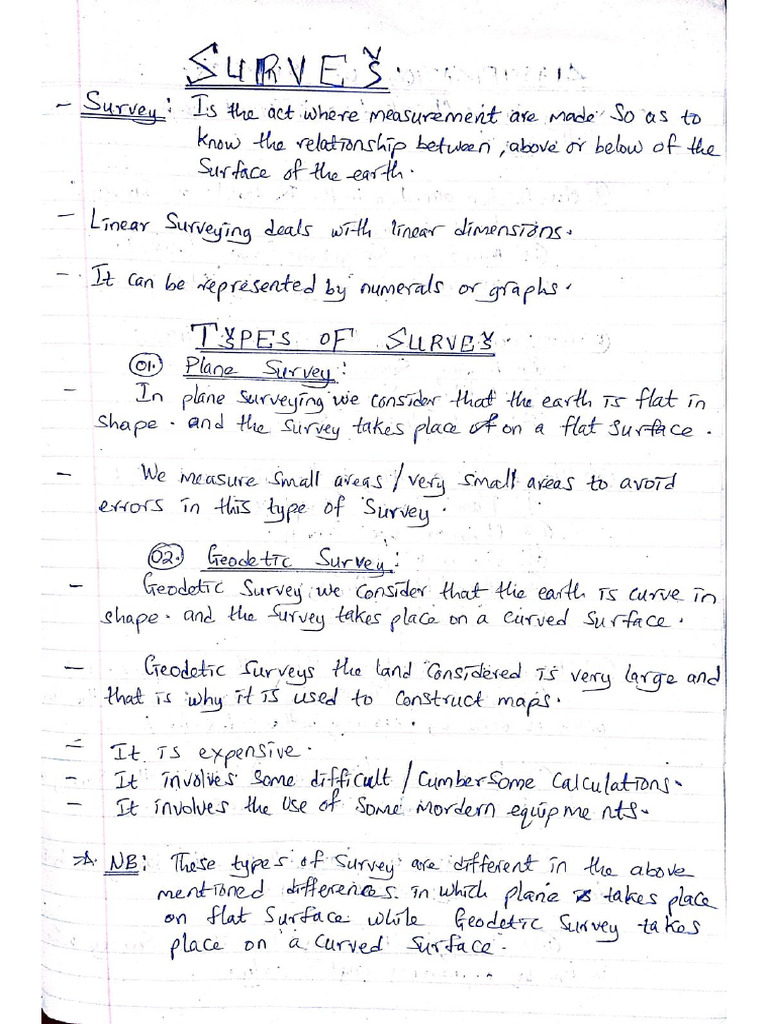 SURVEY.
- Survey: Is the act where measurement are made so as to
know the relationship between, above or below of the
Surface of the earth.
- Linear Surveying deals with linear dimensions.
- It can be represented by numerals or graphs.
TYPES OF SURVEY
01. Plane Survey:
- In plane surveying we consider that the earth is flat in
shape. and the survey takes place on a flat surface.
- We measure small areas/very small areas to avoid
errors in this type of Survey.
02. Geodetic Survey:
- Geodetic Survey we consider that the earth is curve in
shape. and the survey takes place on a curved surface.
- Geodetic Surveys the land considered is very large and
that is why it is used to construct maps.
- It is expensive.
- It involves some difficult/Cumbersome Calculations.
- It involves the use of some mordern equipments.
NB: These types of survey are different in the above
mentioned differences in which plane takes place
on flat surface while Geodetic Survey takes
place on a curved surface.